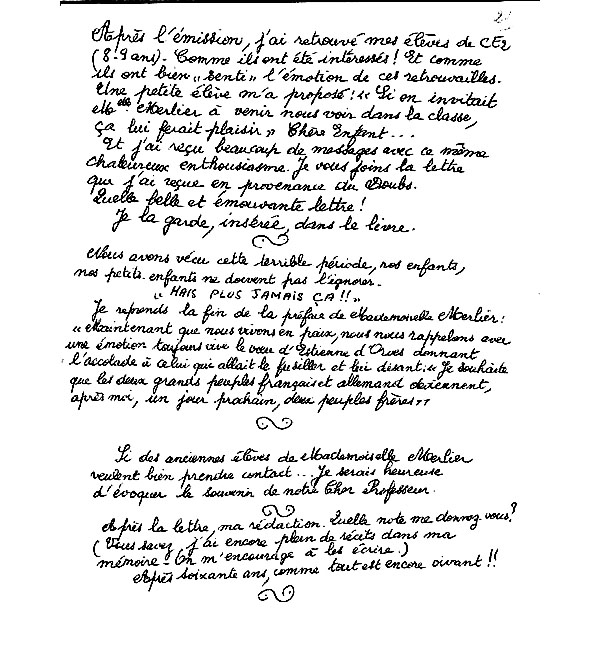 2
Après l'émission, j'ai retrouvé mes élèves de CE2
(8-9 ans). Comme ils ont été intéressés ! Et comme
ils ont bien "senti" l'émotion de ces retrouvailles.
Une petite élève m'a proposé : "Si on invitait
Melle Merlier à venir nous voir dans la classe,
ça lui ferait plaisir" Chère Enfant...
Et j'ai reçu beaucoup de messages avec ce même
chaleureux enthousiasme. Je vous joins la lettre
que j'ai reçue en provenance du Doubs.
Quelle belle et émouvante lettre !
Je la garde, insérée, dans le livre.
Nous avons vécu cette terrible période, nos enfants,
nos petits-enfants ne doivent pas l'ignorer.
"MAIS PLUS JAMAIS ÇA !!"
Je reprends la fin de la préface de Mademoiselle Merlier :
"Maintenant que nous vivons en paix, nous nous rappelons avec
une émotion toujours vive le vœu d'Estienne d'Orves donnant
l'accolade à celui qui allait le fusiller et lui disant : "Je souhaite
que les deux grands peuples français et allemand deviennent,
après moi, un jour prochain, deux peuples frères""
Si des anciennes élèves de Mademoiselle Merlier
veulent bien prendre contact... Je serais heureuse
d'évoquer le souvenir de notre Cher Professeur.
Après la lettre, ma rédaction. Quelle note me donnez vous ?
(Vous savez j'ai encore plein de récits dans ma
mémoire - On m'encourage à les écrire.)
Après soixante ans, comme tout est encore vivant !!